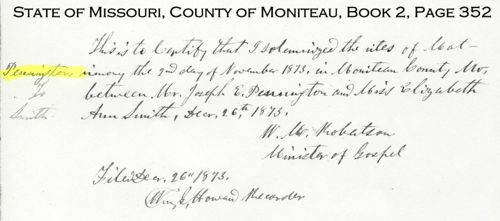 STATE OF MISSOURI, COUNTY OF MONITEAU, BOOK 2, PAGE 352
This is to Certify that I solemnized the rites of Mat-
Pennington rimony the 2nd day of November 1873, in Moniteau County Mo,
To between Mr. Joseph E. Pennington and Miss Elizabeth
Smith. Ann Smith, Dec. 26th, 1873.
W. M. Robatson
Minister of Gospel
Filed Dec. 26th 1873.
Howard Recorder